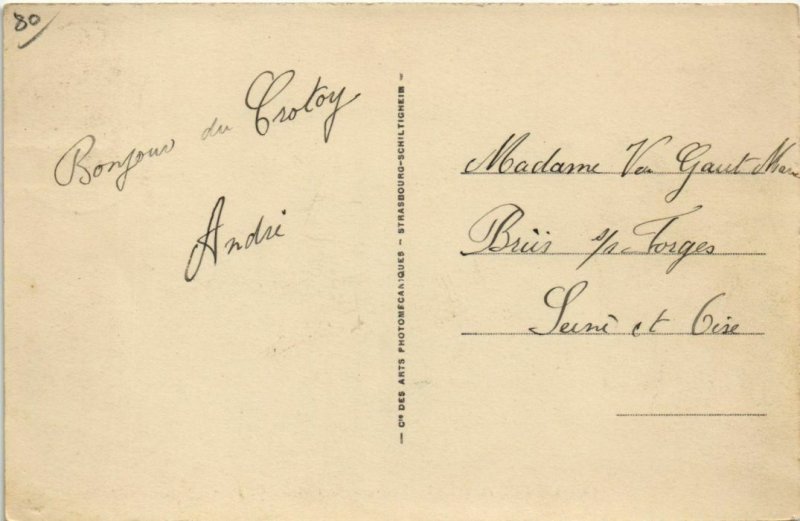 80
Bonjour du Crotoy
André
— Cie DES ARTS PHOTOMECANIQUES – STRASBOURG-SCHILTIGHEIM –
Madame Van Gaut
Briis s/s Forges
Seine et Oise